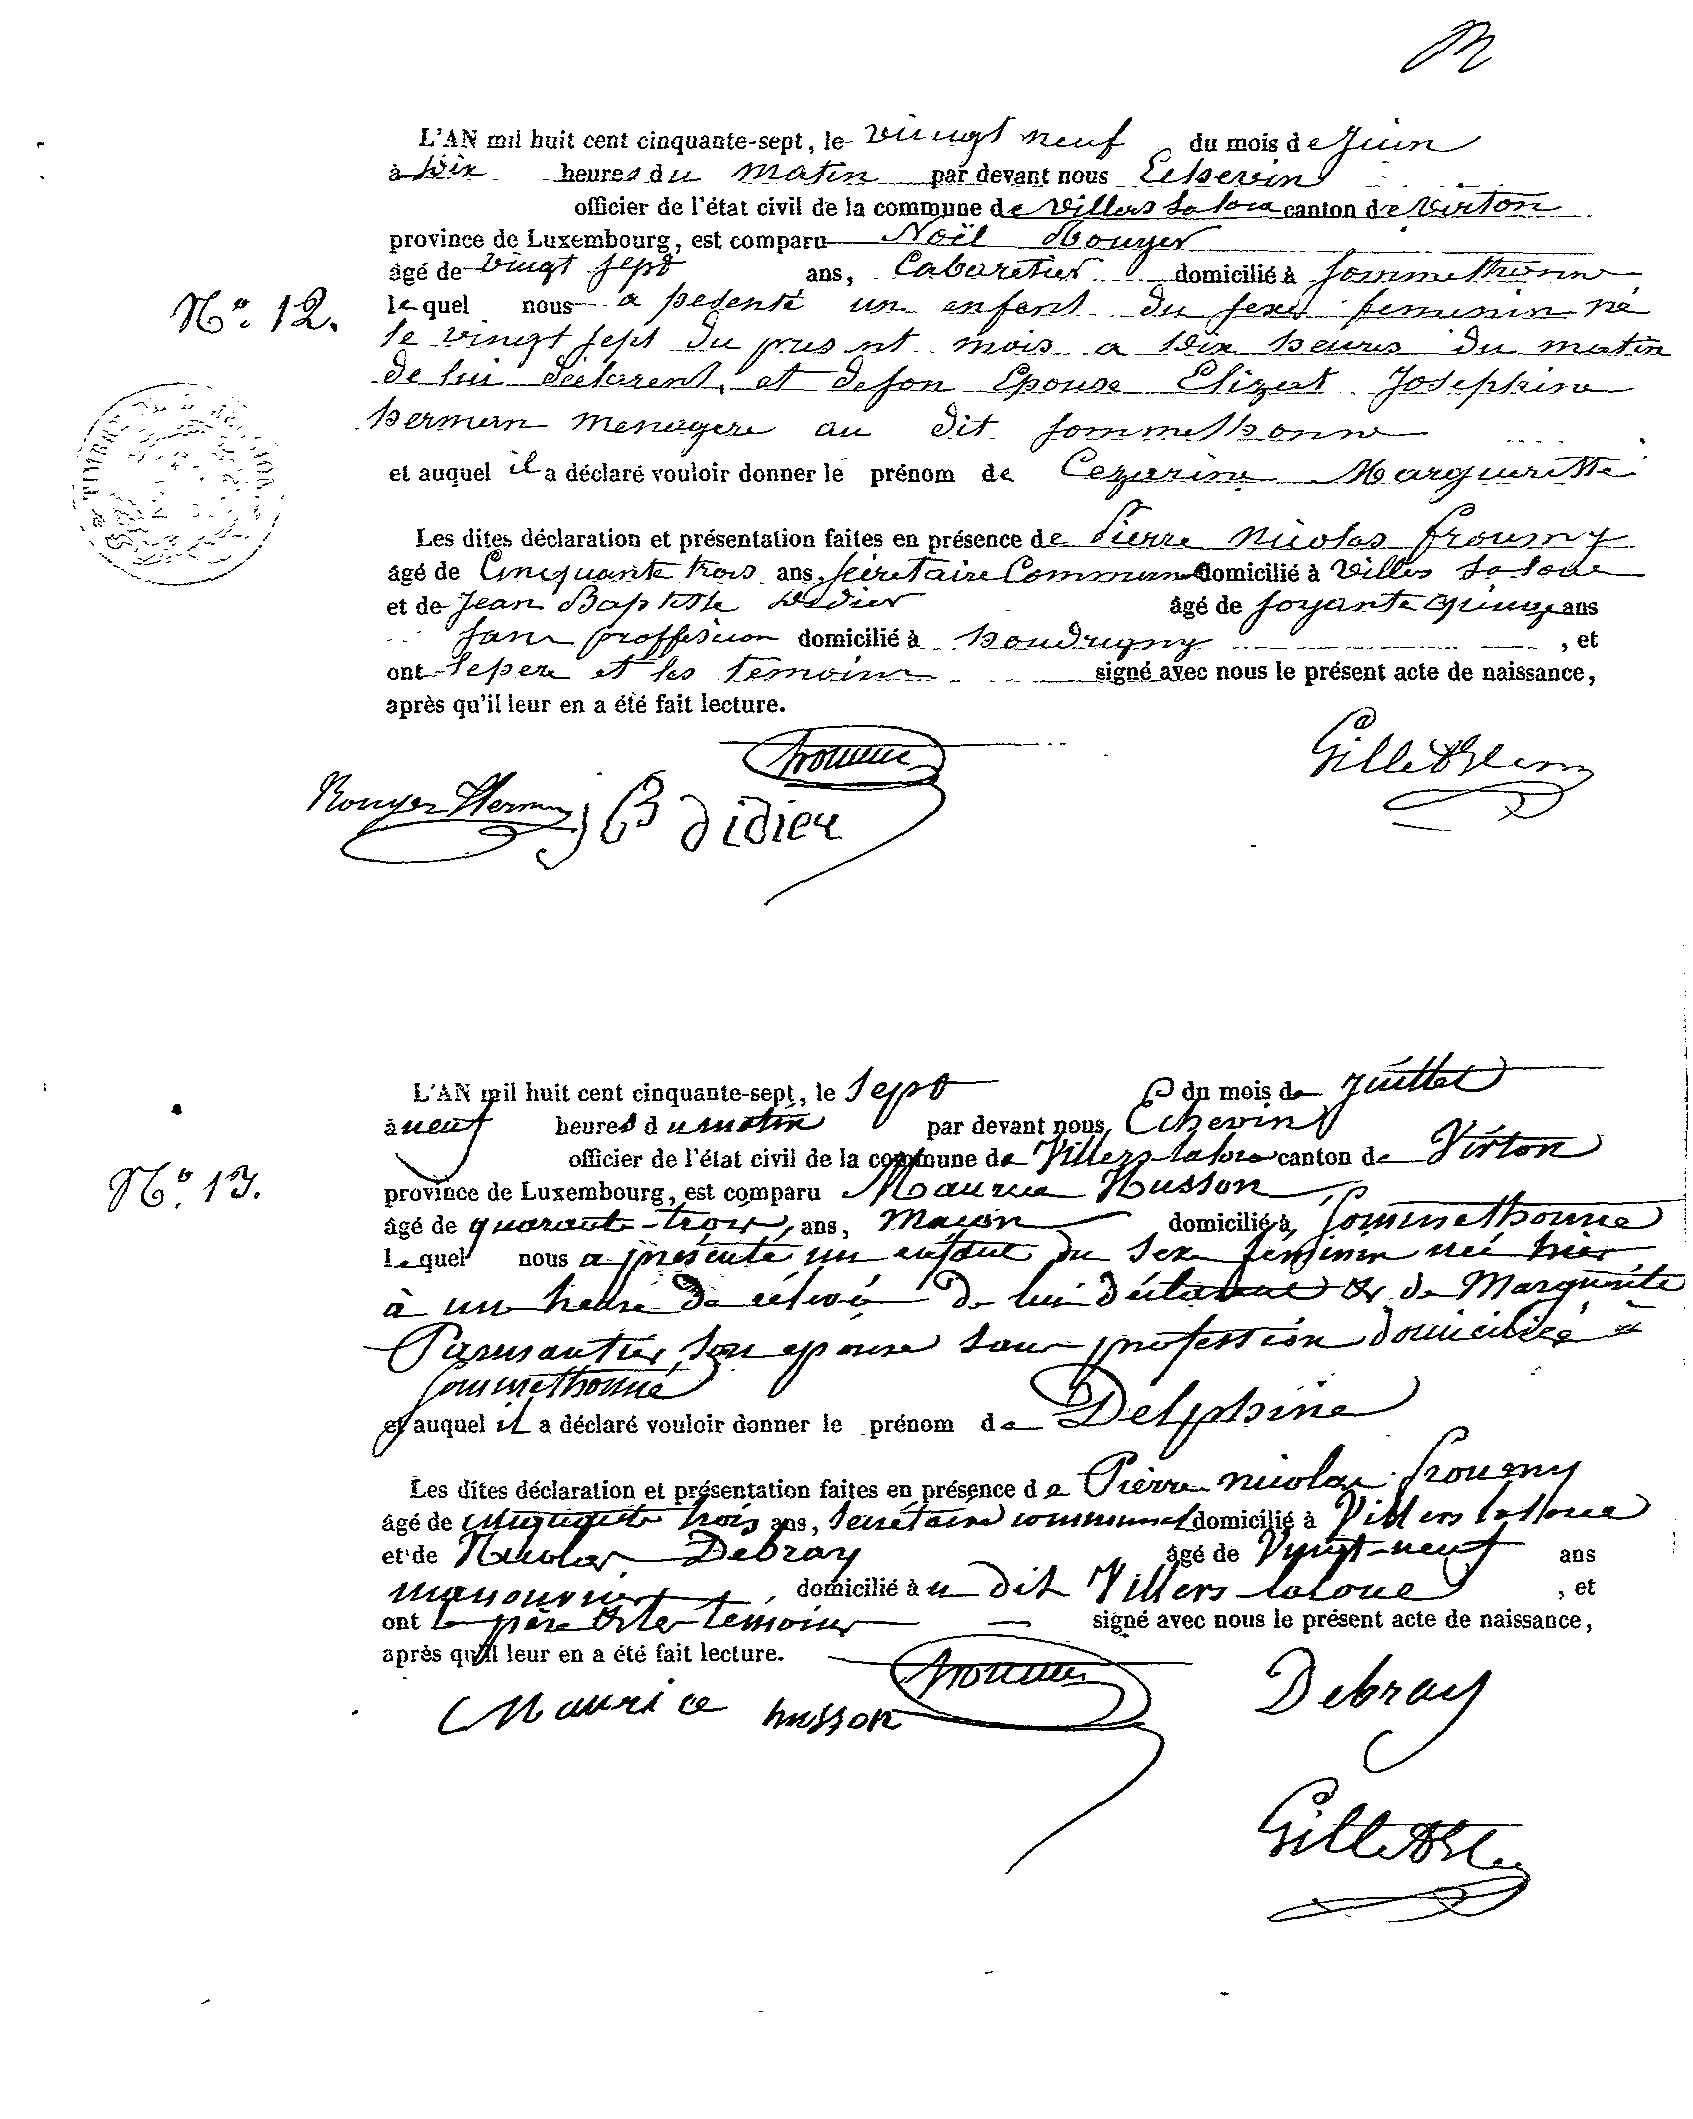 L'AN mil huit cent cinquante-sept, le vingt neuf du mois de Juin
à dix heures du matin par devant nous Echevin
officier de l'état civil de la commune de Villers la loue canton de Virton
province de Luxembourg, est comparu Noël Rouyer
âgé de vingt sept ans, Cabaretier domicilié à Sommethonne
N° 12. lequel nous a pesenté un enfant du sexe feminin né
le vingt sept du present mois a dix heures du matin
de lui déclarent, et de son Epouse Elizabt Josephine
herman menagere au dit Sommethonne
et auquel il a déclaré vouloir donner le prénom de Cezarine Margueritte
Les dites déclaration et présentation faites en présence de Pierre Nicolas froumy
âgé de Cinquante trois ans, Sécretaire Communal domicilié à Villers la loue
et de Jean Baptiste Didier âgé de soyante quinze ans
sans proffession domicilié à houdrigny , et
ont le pere et les temoins signé avec nous le présent acte de naissance,
après qu'il leur en a été fait lecture.
froumy
Rouyer Herman J B didier
L'AN mil huit cent cinquante-sept, le sept du mois de Juillet
à neuf heures du matin par devant nous Echevin
officier de l'état civil de la commune de Villers-la loue canton de Virton
N° 13. province de Luxembourg, est comparu Maurice Husson
âgé de quarante-trois, ans, Maçon domicilié à Sommethonne
lequel nous a présenté un enfant du sexe feminin né hier
à une heure de rélevé de lui déclarant & de Marguerite
Parmantier son epouse sans profession domiciliée à
Sommethonne
et auquel il a déclaré vouloir donner le prénom de Delphine
Les dites déclaration et présentation faites en présence de Pierre nicolas froumy
âgé de cinquante trois ans, Secrétaire communal domicilié à Villers la loue
et de Nicolas Debray âgé de Vingt-neuf ans
manouvrier domicilié à u dit Villers-laloue , et
ont le père & les temoins signé avec nous le présent acte de naissance,
après qu'il leur en a été fait lecture.
froumy Debray
Maurice husson